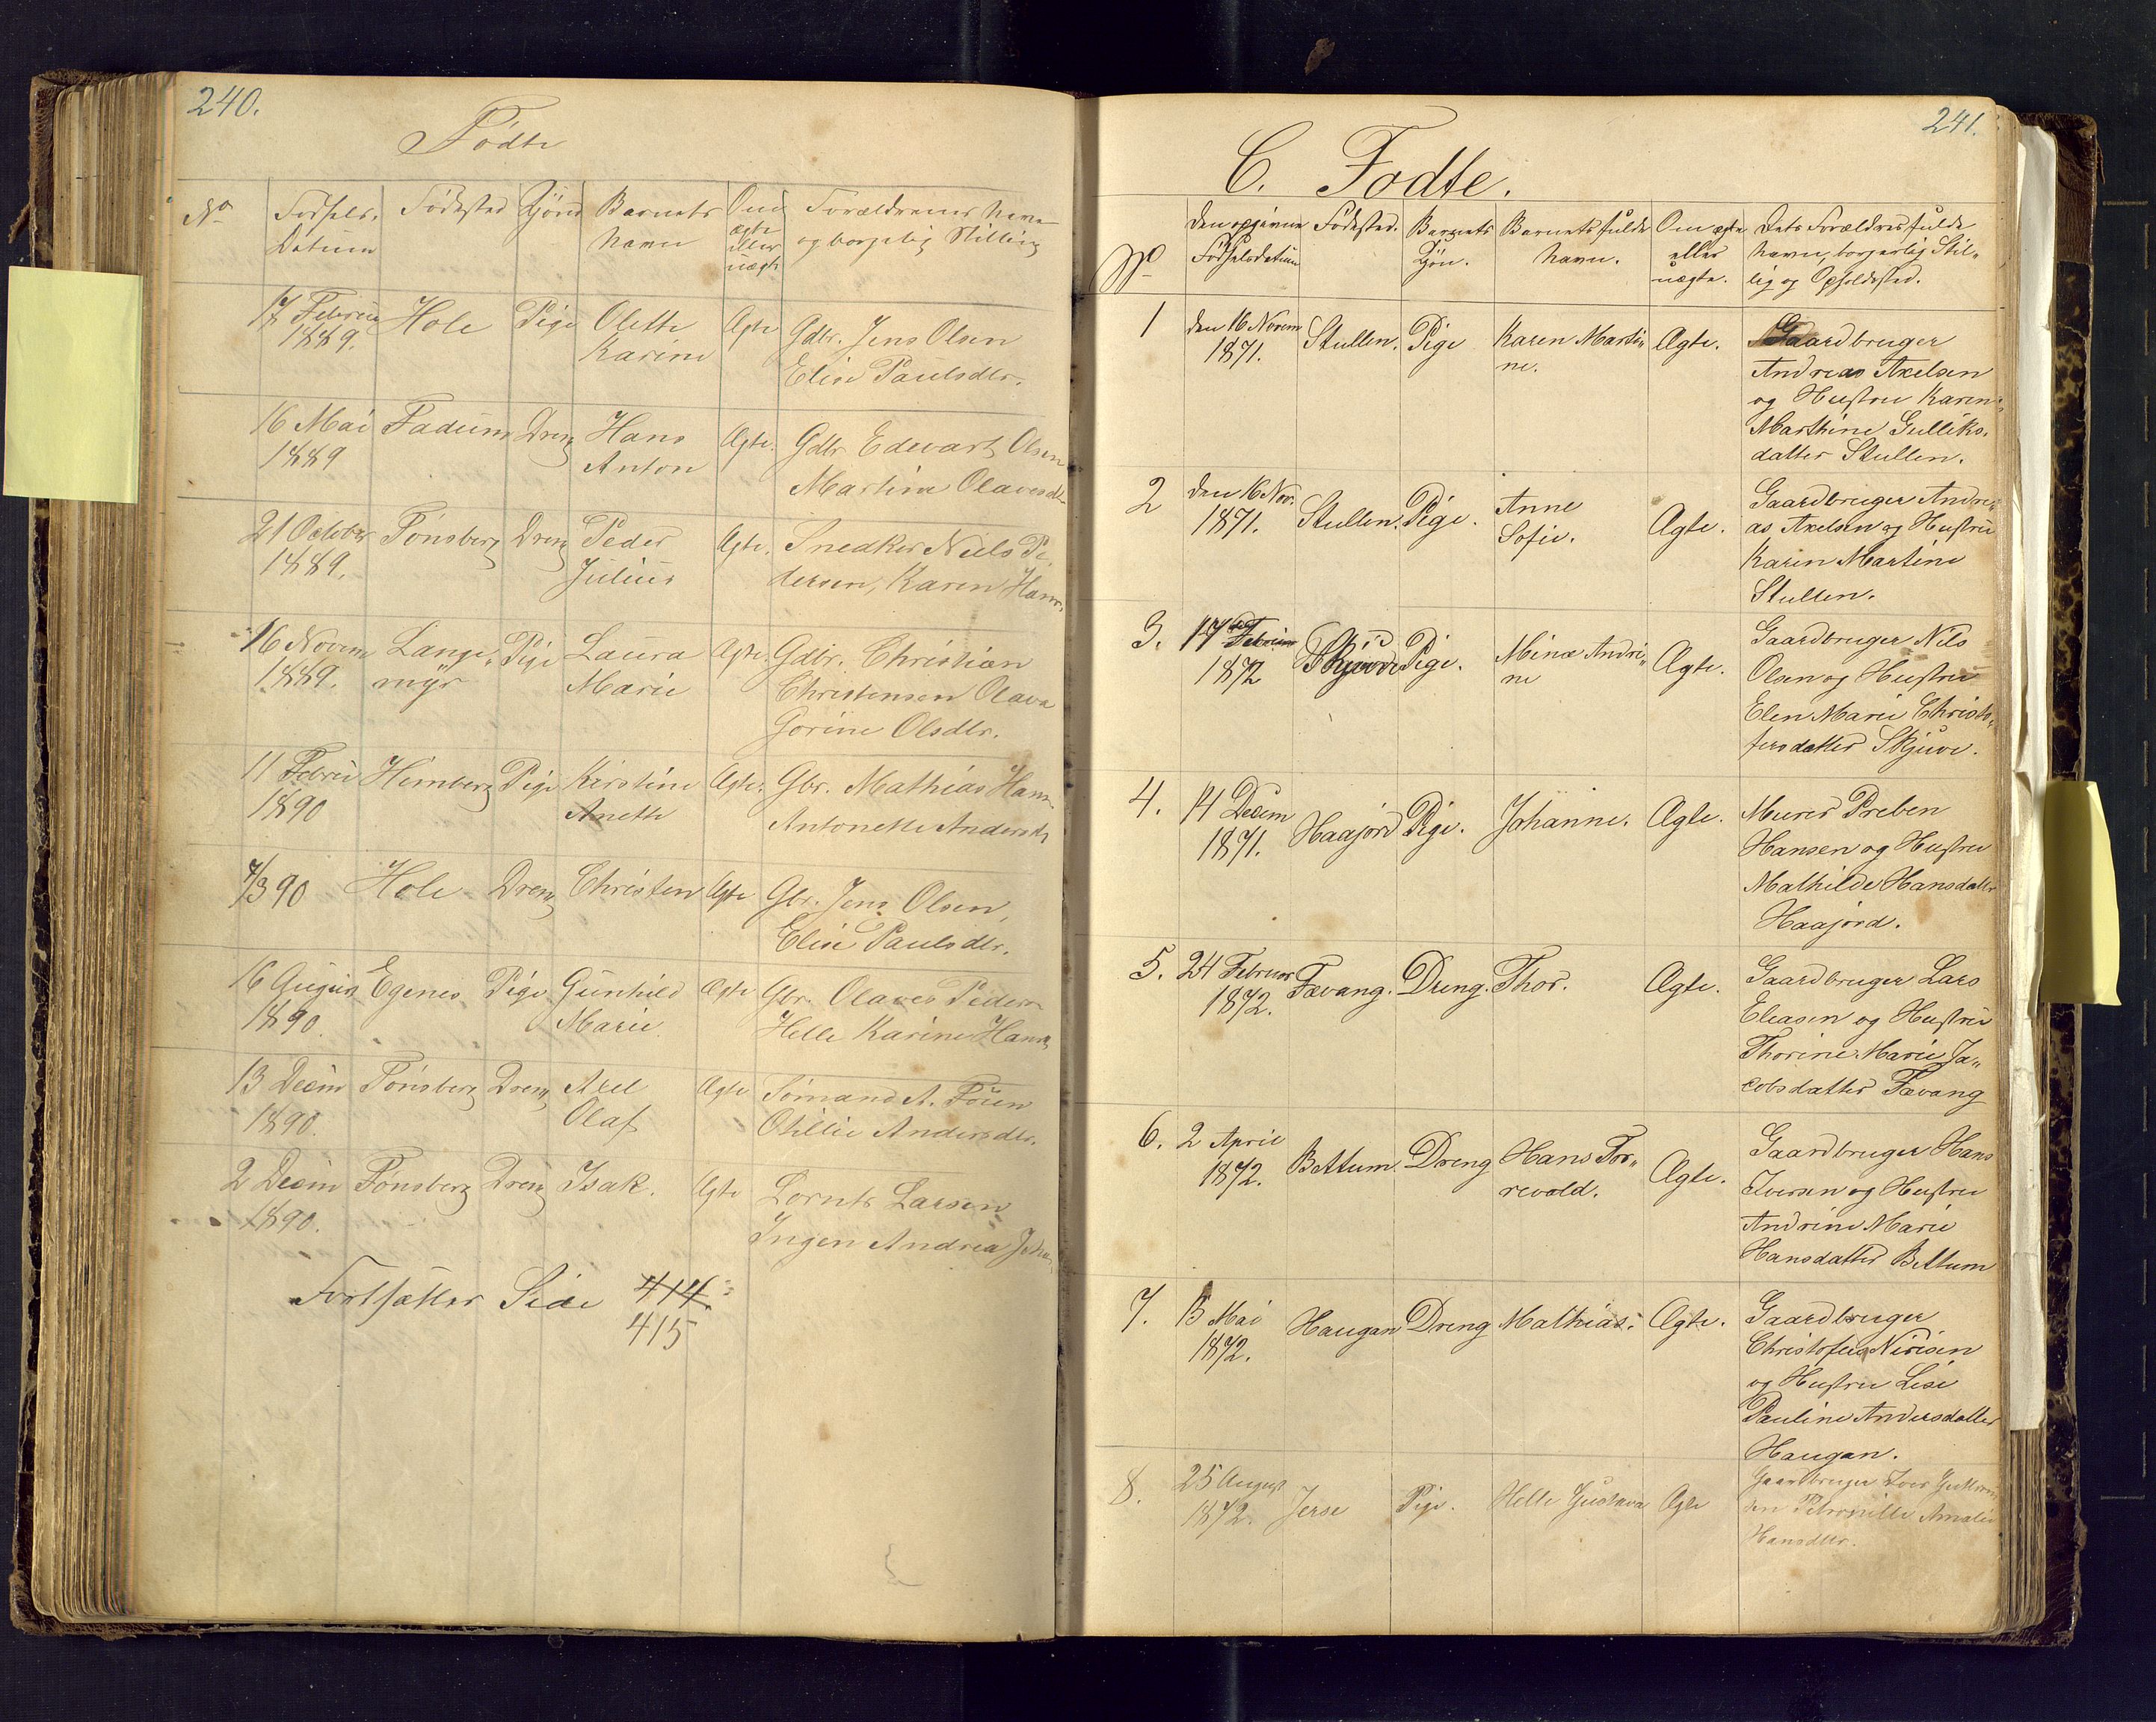 240.
Födte
No
Fødsels-
Datum
Fødested
Kjøn
Barnets
Navn
Om
ægte
eller
uægte
Forældrenes Navn
og borgerlig Stilling
17 Februar
1889.
Hole
Pige
Olette
Karine
Ægte
Gdbr. Jens Olsen
Elise Paulsdtr.
16 Mai
1889
Fadum
Dreng
Hans
Anton
Ægte.
Gdbr Edevart Olsen
Martine
21 October
1889.
Tönsberg
Dreng
Peder
Julius
Ægte.
Snedker Niels Pe
dersen, Karen Hans
16 Novem
1889.
Lange"
myr
Pige
Laura
Marie
Ægte.
Gdbr. Christian
Christensen Olava
Gorine Olsdtr.
11 Febru
1890
Himberg
Pige
Kirstine
Anette
Ægte.
Gbr. Mathias Hans
Antonette
7/3 90
Hole
Dreng
Christen
Ægte
Gbr. Jens Olsen,
Elise Paulsdtr.
16 August
1890.
Egenes
Pige
Gunhild
Marie
Ægte
Gbr. Olaves Peders
Helle Karine Hans
13 Decm
1890.
Tönsberg
Dreng
Axel
Olaf
Ægte
Sömand A.
Otillie Andersdtr.
2 Decm
1890.
Tönsberg
Dreng
Isak.
Ægte
Lornts Larsen
Andrea
Fortsætter Side 414.
415
241.
C. Fodte.
No
Den opgivne
Fødselsdatum
Fødested.
Barnets
Kjön.
Barnets fulde
Navn.
Om ægte
eller
uægte.
Dets Forældres fulde
Navn, borgerlig Stil"
lig og Opholdssted.
1
den 16 Novem
1871.
Stullen.
Pige
Karen Marti"
ne.
Ægte.
Gaardbruger
Andreas Axelsen
og Hustru Karen"
Marthine Gulliks.
datter Stullen.
2
den 16 Nov.
1871.
Stullen.
Pige.
Anne
Sofie.
Ægte.
Gaardbruger Andre"
as Axelsen og Hustru
Karen Martine
Stullen.
3.
17 Februar
1872
Pige.
Mina Andri"
ne
Ægte.
Gaardbruger Nils
Olsen og Hustru
Elen Marie Christo"
fersdatter Skjuve.
4.
14 Decem
1871.
Haajord
Pige.
Johanne.
Ægte.
Murer Preben
Hansen og Hustru
Mathilde Hansdatter
Haajord.
5.
24 Februar
1872.
Fævang.
Dreng.
Thor.
Ægte.
Gaardbruger Lars
Eliasen og Hustru
Thorine Marie Ja"
cobsdatter Fævang
6.
2 April
1872.
Bettum.
Dreng
Hans Tor"
revald.
Ægte.
Gaardbruger Hans
Iversen og Hustru
Andrine Marie
Hansdatter Bettum
7.
13 Mai
1872.
Haugan
Dreng
Mathias.
Ægte.
Gaardbruger
Christofer
og Hustru Lise
Pauline Andersdatter
Haugan.
8.
25 August
1872.
Jerse
Pige.
Helle Gustava
Ægte
Gaardbruger Iver
Petronille Amalie
Hansdtr.